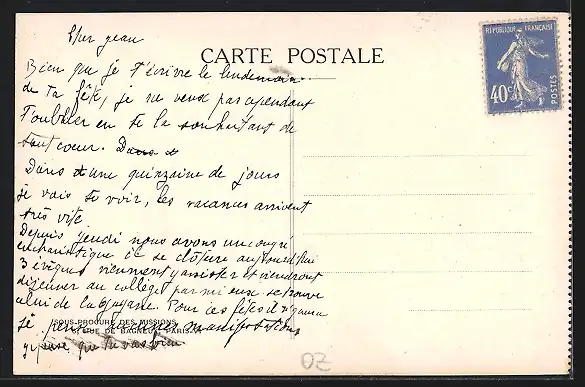 Cher Jean
CARTE POSTALE
RÉPUBLIQUE FRANÇAISE
40c
POSTES
Bien que je t'écrive le lendemain
de ta fête, je ne veux pas cependant
t'oublier en te la souhaitant de
tout coeur.
Dans une quinzaine de jours
je vais te voir, les vacances arrivent
très vite
Depuis jeudi nous avons un congrè
eucharistique ici se clôture aujourd'hui
3 évêques viennent y assister et viendront
déjeuner au collège parmi eux se trouve
celui de la Guyane. Pour ces fêtes il y aura
SOUS-PROCURE DES MISSIONS
RUE DE BAGNEUX PARIS
je pense manifestations
que tu vas bien
OZ